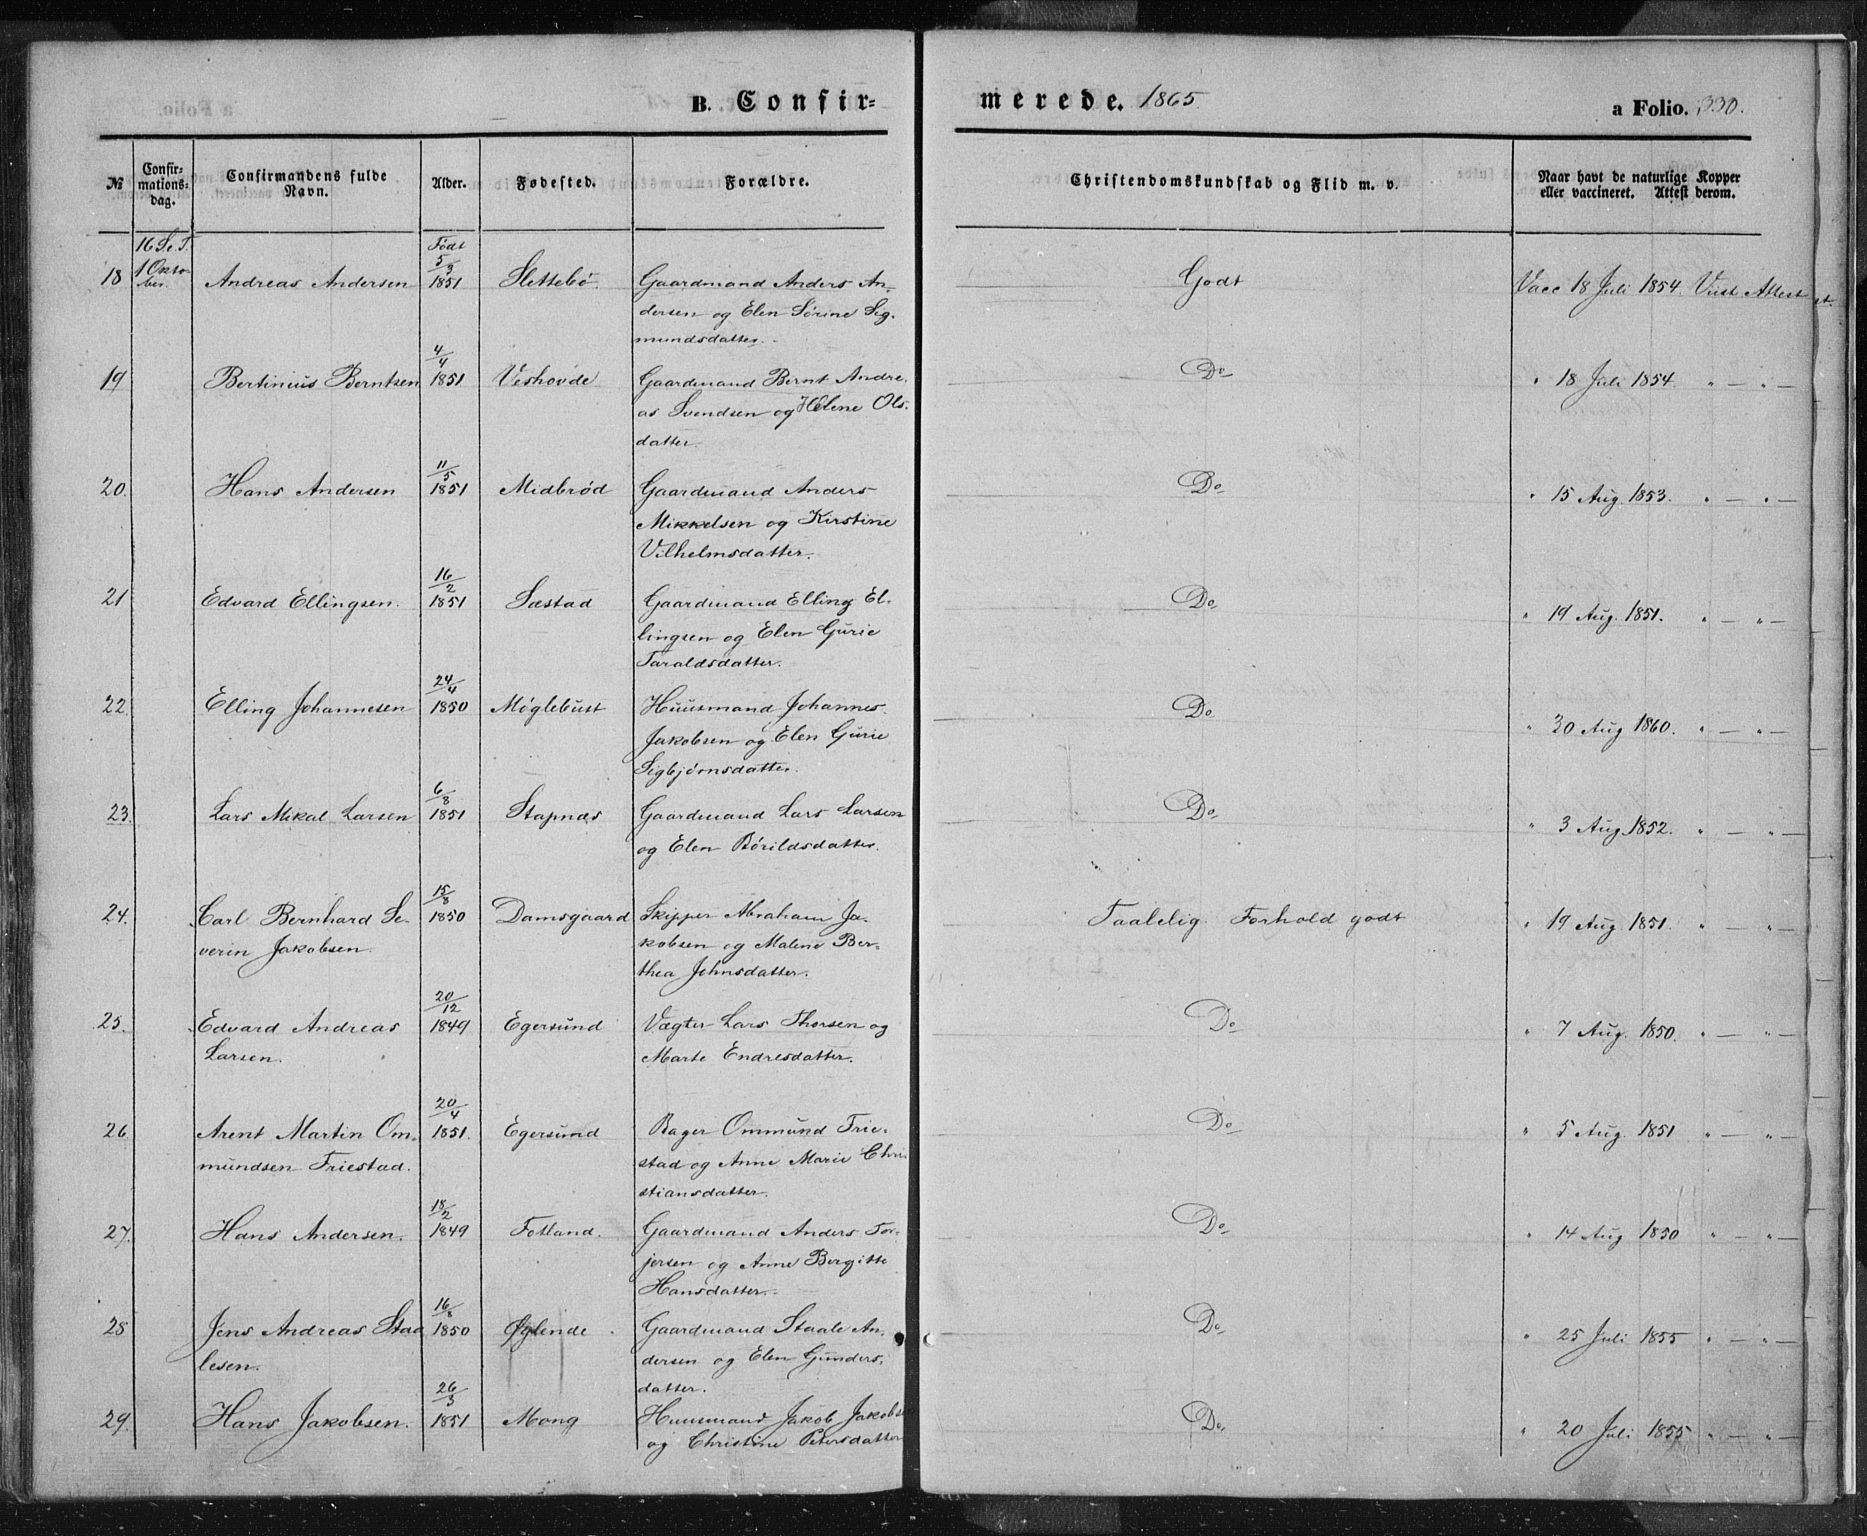 B. Confir=
merede. 1865
a Folio. 330.
№
Confir-
mations-
dag.
Confirmandens fulde
Navn.
Alder.
Fødested.
Forældre.
Christendomskundskab og Flid m. v.
Naar havt de naturlige Kopper
eller vaccineret. Attest derom.
16 S. e. T. Født
18 1 Okto- Andreas Andersen 5/3 Slettebø. Gaardmand Anders An- Godt Vacc 18 Juli 1854. Viist Attest
ber. 1851 dersen og Elen Sørine Sig-
mundsdatter.
19 Bertinius Berntsen 4/4 1851 Veshovde Gaardmand Bernt Andre- Do " 18 Juli 1854. " — " —
as Svendsen og Helene Ols-
datter
20. Hans Andersen 11/5 1851 Midbrød Gaardmand Anders Do " 15 Aug. 1853. " — " —
Mikkelsen og Kirstine
Vilhelmsdatter.
21 Edvard Ellingsen. 16/2 1851 Sæstad Gaardmand Elling El- Do " 19 Aug. 1851. " — " —
lingsen og Elen Gurie
Taraldsdatter.
22. Elling Johannesen 24/4 1850 Møglebust Huusmand Johannes Do " 30 Aug 1860. " — " —
Jakobsen og Elen Gurie
Sigbjørnsdatter.
23. Lars Mikal Larsen 6/8 1851 Stapnæs Gaardmand Lars Larsen Do " 3 Aug. 1852. " — " —
og Elen Børildsdatter.
24. Carl Bernhard Se- 15/8 1850 Damsgaard Skipper Abraham Ja- Taalelig. Forhold godt " 19 Aug. 1851. " — " —
verin Jakobsen. kobsen og Malene Ber-
thea Johnsdatter.
25. Edvard Andreas 20/12 1849 Egersund Vægter Lars Thorsen og Do " 7 Aug. 1850. " — " —
Larsen. Marte Endresdatter.
26. Arent Martin Om- 20/4 1851. Egersund Bager Ommund Frie- Do " 5 Aug. 1851 " — " —
mundsen Friestad. stad og Anne Marie Chri-
stiansdatter.
27. Hans Andersen. 18/2 1849 Fotland. Gaardmand Anders Tor- Do " 14 Aug 1850 " — " —
jersen og Anne Bergitte
Hansdatter.
28 Jens Andreas Staa 16/8 1850 Øglende Gaardmand Staale An- Do " 25 Juli 1855 " — " —
lesen. dersen og Elen Gunders-
datter.
29. Hans Jakobsen. 26/3 1851 Mong Huusmand Jakob Jakobsen Do " 20 Juli 1855 " — " —
og Christine Petersdatter